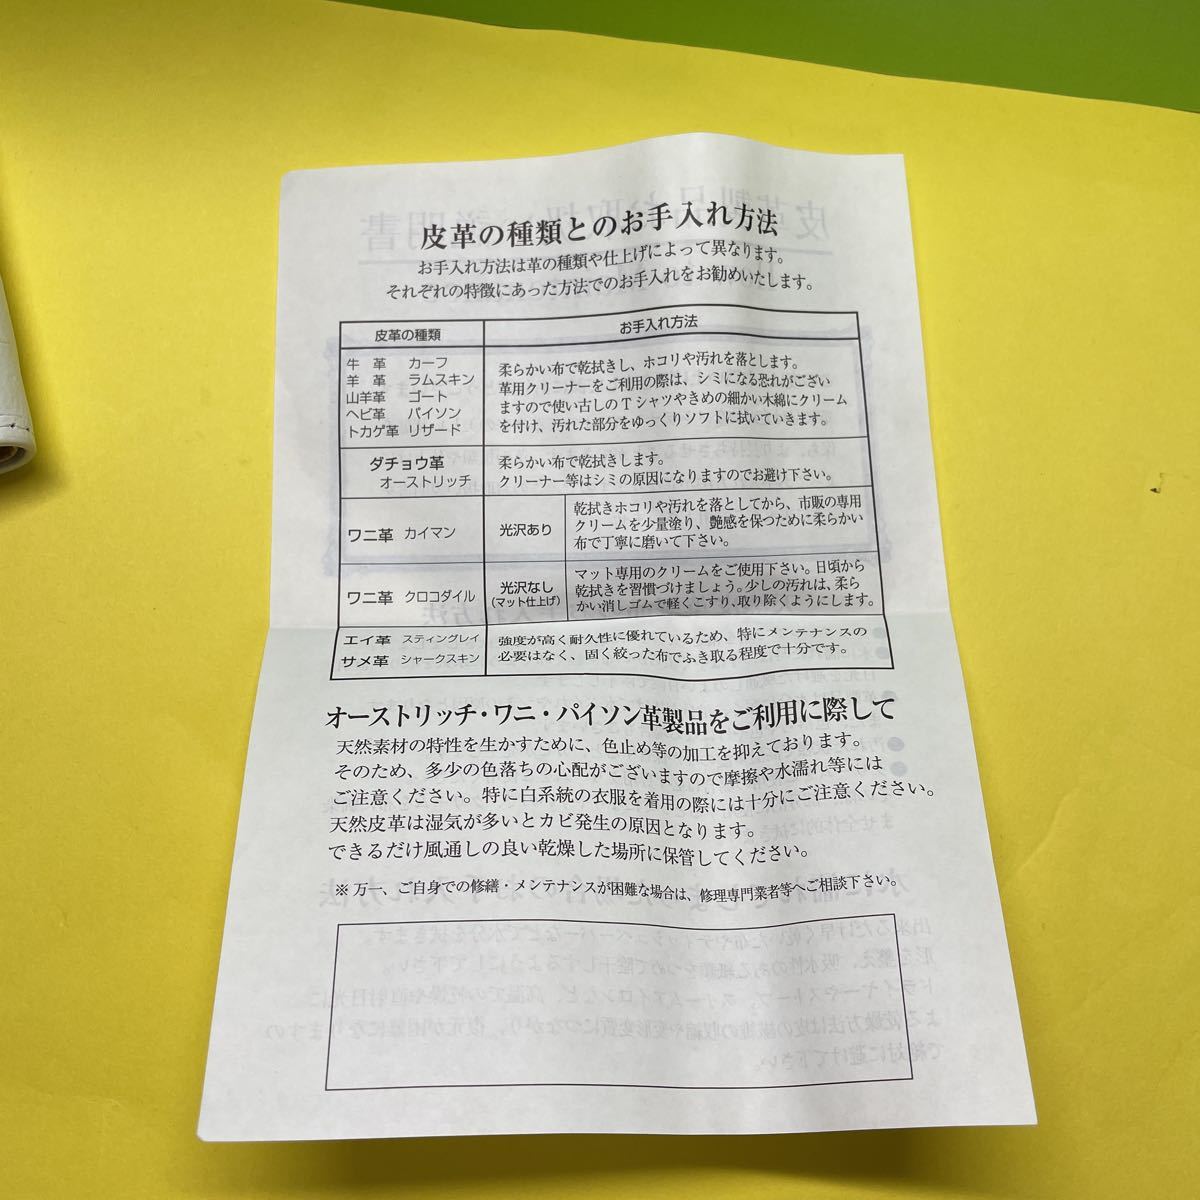 皮革の種類とのお手入れ方法
お手入れ方法は革の種類や仕上げによって異なります。
それぞれの特徴にあった方法でのお手入れをお勧めいたします。
皮革の種類
お手入れ方法
牛 革 カーフ
羊 革 ラムスキン
山羊革 ゴート
ヘビ革 パイソン
トカゲ革 リザード
柔らかい布で乾拭きし、ホコリや汚れを落とします。
革用クリーナーをご利用の際は、シミになる恐れがござい
ますので使い古しのTシャツやきめの細かい木綿にクリーム
を付け、汚れた部分をゆっくりソフトに拭いていきます。
ダチョウ革
オーストリッチ
柔らかい布で乾拭きします。
クリーナー等はシミの原因になりますのでお避け下さい。
ワニ革 カイマン
光沢あり
乾拭きホコリや汚れを落としてから、市販の専用
クリームを少量塗り、艶感を保つために柔らかい
布で丁寧に磨いて下さい。
ワニ革 クロコダイル
光沢なし
(マット仕上げ)
マット専用のクリームをご使用下さい。日頃から
乾拭きを習慣づけましょう。少しの汚れは、柔ら
かい消しゴムで軽くこすり、取り除くようにします。
エイ革 スティングレイ
サメ革 シャークスキン
強度が高く耐久性に優れているため、特にメンテナンスの
必要はなく、固く絞った布でふき取る程度で十分です。
オーストリッチ・ワニ・パイソン革製品をご利用に際して
天然素材の特性を生かすために、色止め等の加工を抑えております。
そのため、多少の色落ちの心配がございますので摩擦や水濡れ等には
ご注意ください。特に白系統の衣服を着用の際には十分にご注意ください。
天然皮革は湿気が多いとカビ発生の原因となります。
できるだけ風通しの良い乾燥した場所に保管してください。
※ 万一、ご自身での修繕・メンテナンスが困難な場合は、修理専門業者等へご相談下さい。